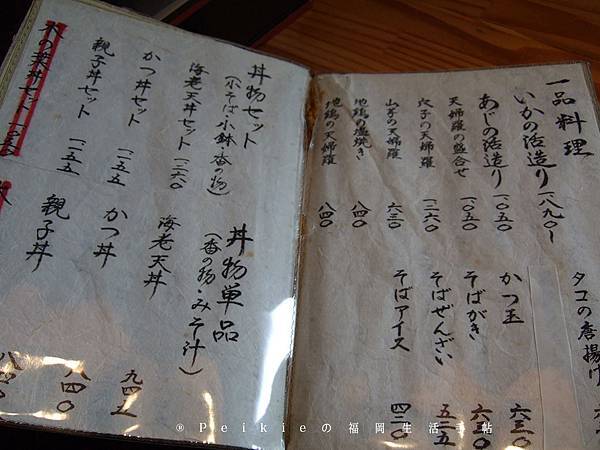 一品料理
いかの活造り 一八九〇〜
あじの活造り 一〇五〇
天婦羅の盛合せ 一〇五〇
穴子の天婦羅 一二六〇
山芋の天婦羅 六三〇
地鶏の塩焼き 八四〇
地鶏の天婦羅 八四〇
タコの唐揚げ
かつ玉 六三〇
そばがき 六三〇
そばぜんざい 五二五
そばアイス 四二〇
丼物セット
(小そば・小鉢・香の物)
海老天丼セット 一二六〇
かつ丼セット 一一五五
親子丼セット 一一五五
木の葉丼セット 一一五〇
丼物単品
(香の物・みそ汁)
海老天丼 九四五
かつ丼 八四〇
親子丼 八四〇
®Peikieの福岡生活手帖